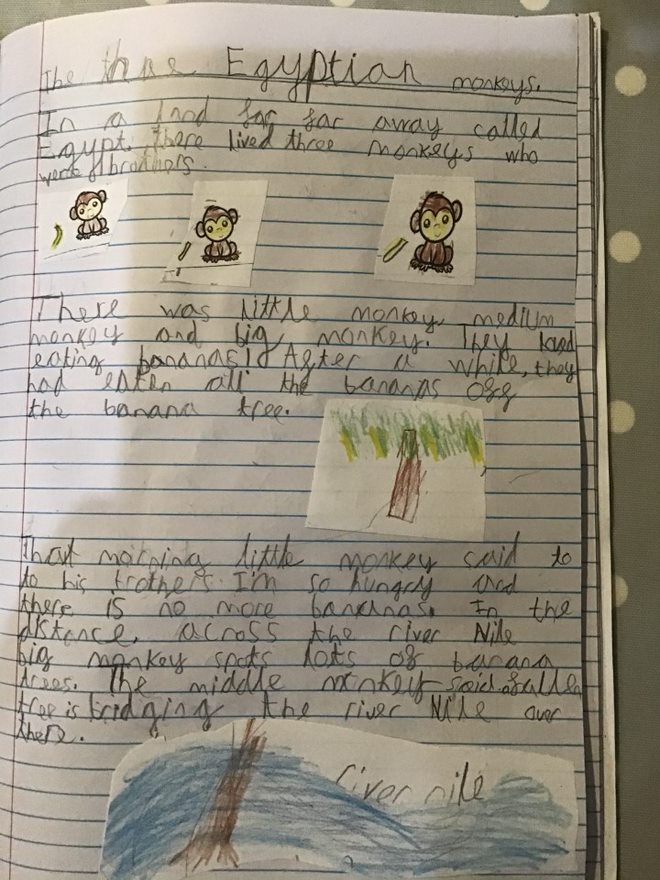 The three Egyptian monkeys.
In a land far far away called
Egypt. there lived three monkeys who
were brothers.
There was little monkey medium
monkey and big monkey. They loved
eating bananas! After a while, they
had eaten all the bananas off
the banana tree.
That morning little monkey said to
to his brothers I'm so hungry and
there is no more bananas. In the
distance, across the river Nile
big monkey spots lots of banana
trees. The middle monkey said fallen
tree is bridging the river Nile over
there.
river nile